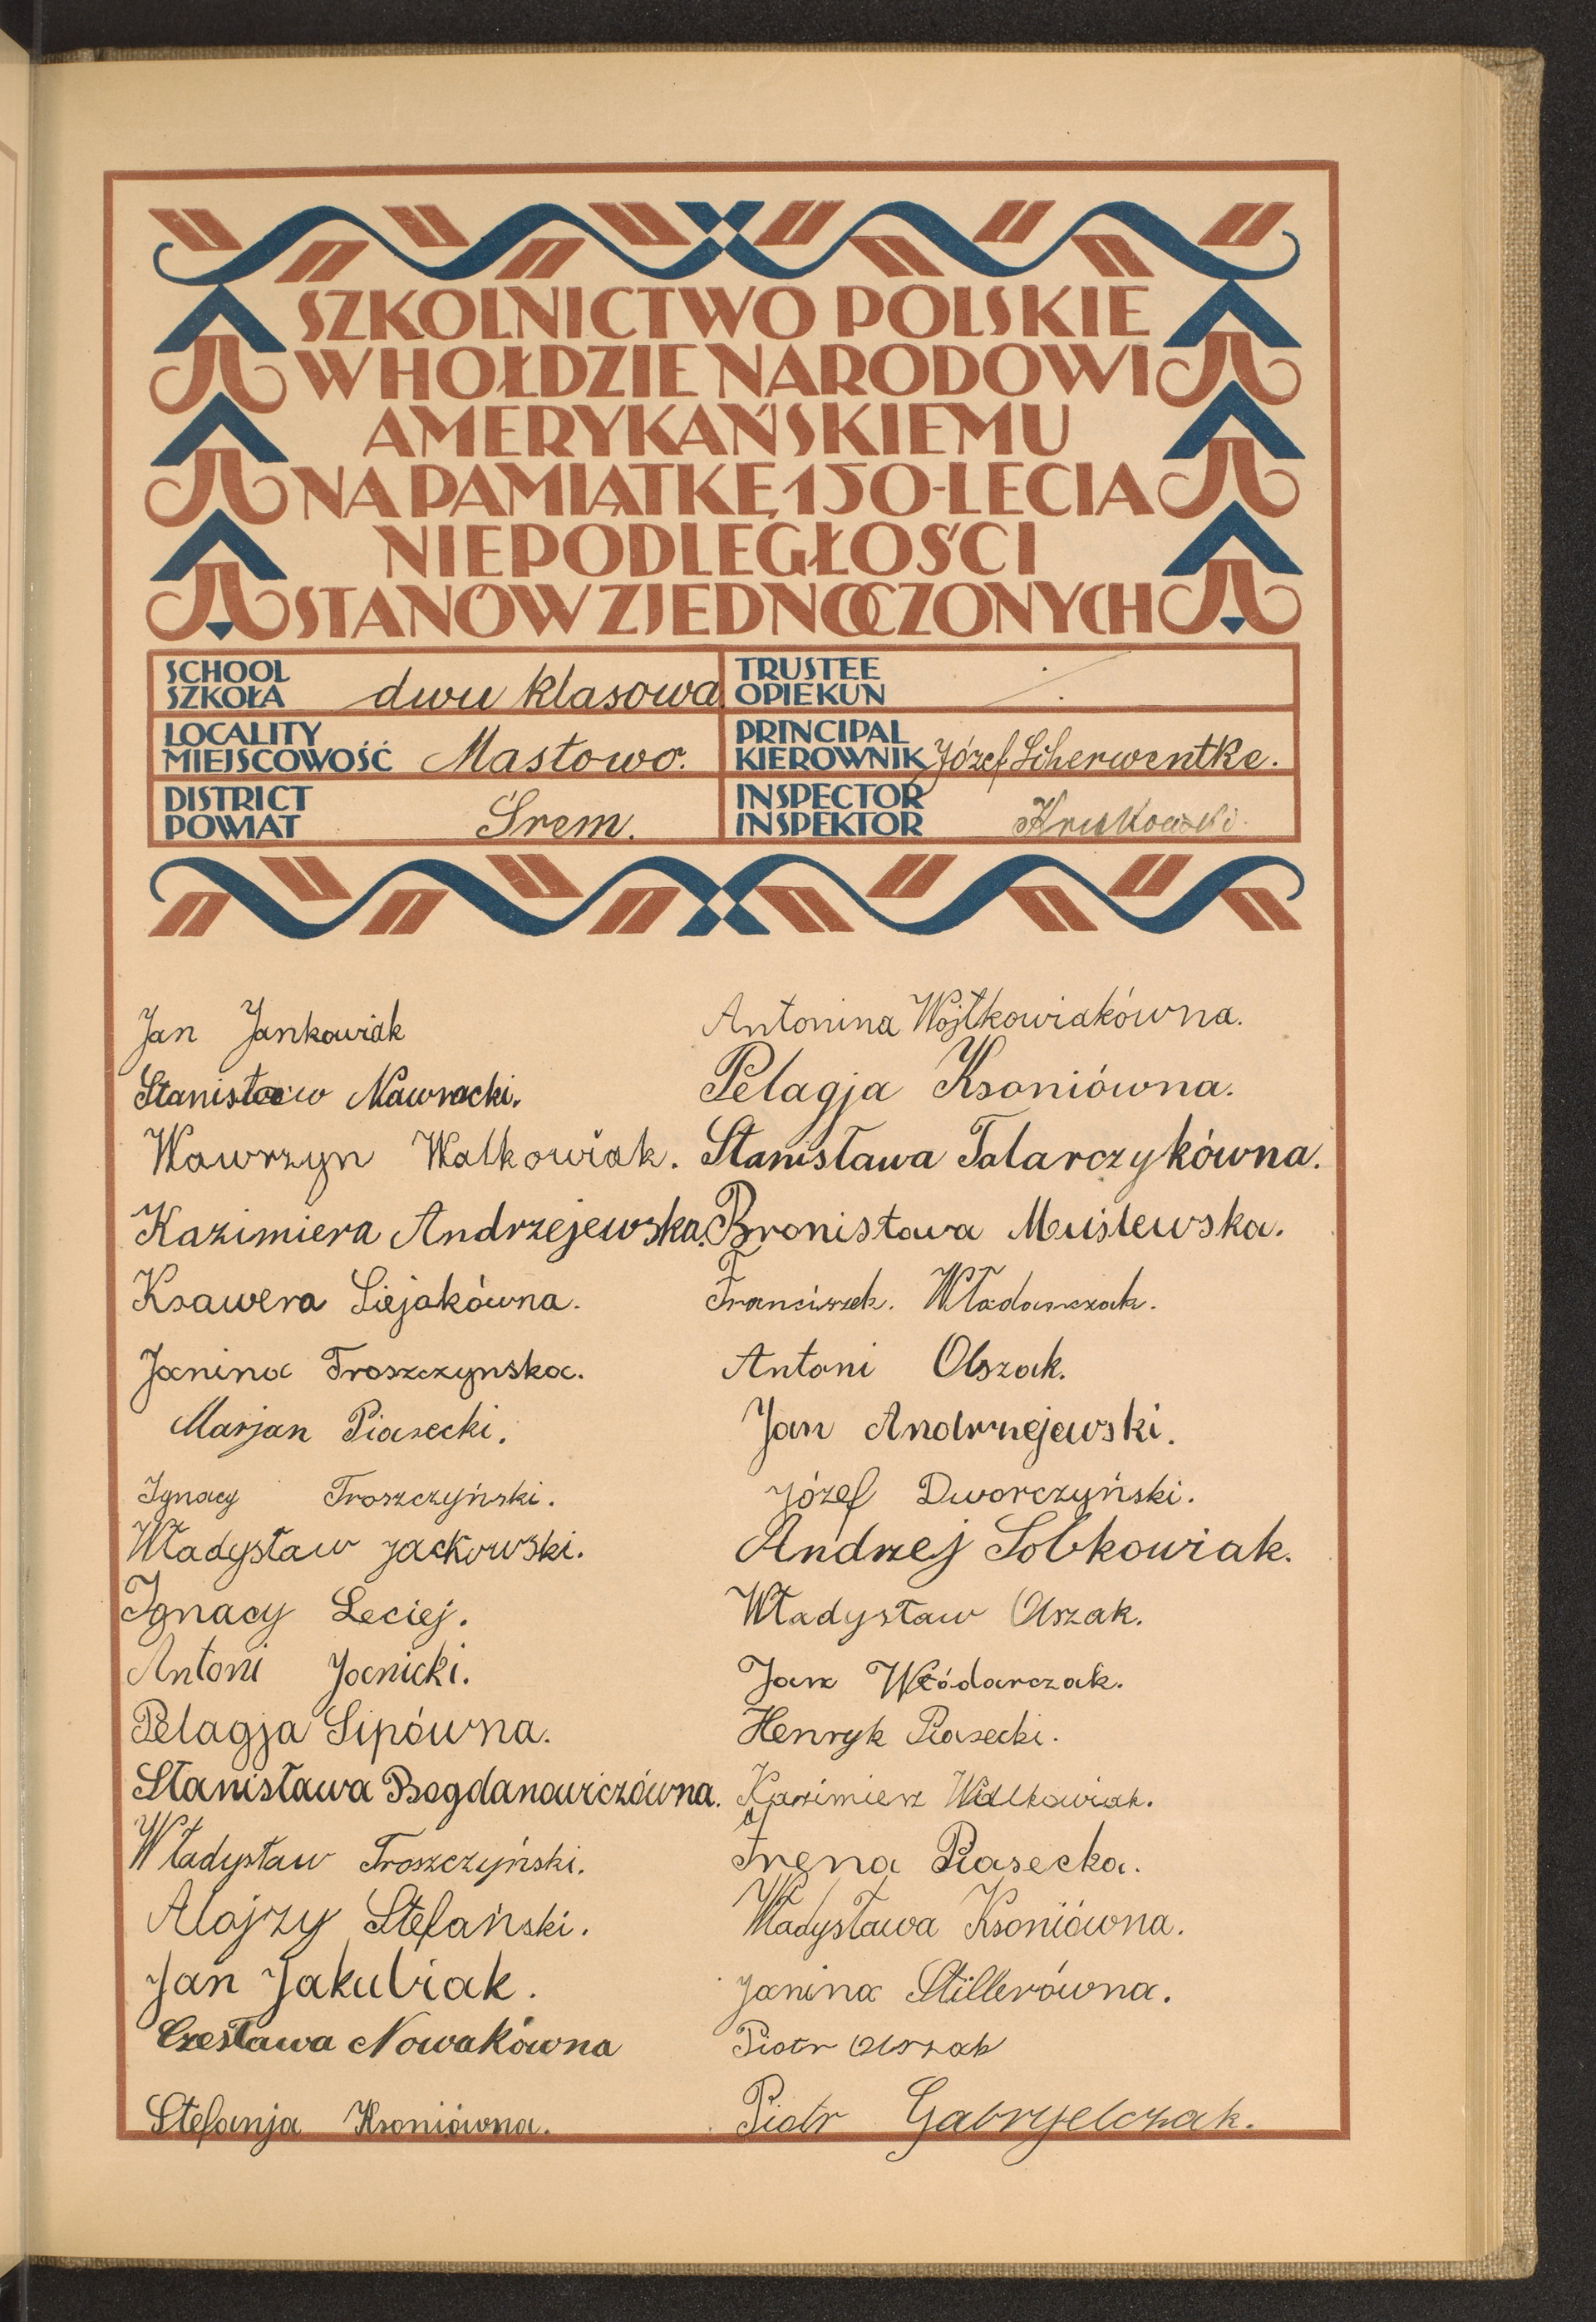 SZKOLNICTWO POLSKIE
W HOŁDZIE NARODOWI
AMERYKAŃSKIEMU
NA PAMIĄTKĘ 150-LECIA
NIEPODLEGŁOŚCI
STANÓW ZJEDNOCZONYCH
SCHOOL
SZKOŁA dwu klasowa
TRUSTEE
OPIEKUN
LOCALITY
MIEJSCOWOŚĆ Masłowo.
PRINCIPAL
KIEROWNIK Józef Scherwentke.
DISTRICT
POWIAT Śrem.
INSPECTOR
INSPEKTOR Kruskowski
Jan Jankowiak
Stanisław Nawracki.
Wawrzyn Walkowiak.
Kazimiera Andrzejewska.
Ksawera Siejakówna.
Janina Troszczynska.
Marjan Piasecki.
Ignacy Troszczyński.
Władysław Jackowski.
Ignacy Leciej.
Antoni Janicki.
Pelagja Lipówna.
Stanisława Bogdanowiczówna.
Władysław Troszczyński.
Alojzy Stefański.
Jan Jakubiak.
Czesława Nowakówna
Stefanja Ksoniówna.
Antonina Wojtkowiakówna.
Pelagja Ksoniówna.
Stanisława Talarczykówna.
Bronisława Muślewska.
Franciszek. Władarczak.
Antoni Olszak.
Jan Andrzejewski.
Józef Dworczyński.
Andrzej Sobkowiak.
Władysław Olszak.
Jan Włódarczak.
Henryk Piasecki.
Kazimierz Walkowiak.
Irena Piasecka.
Władysława Ksoniówna.
Janina Stillerówna.
Piotr Olszak
Piotr Gabryelczak.